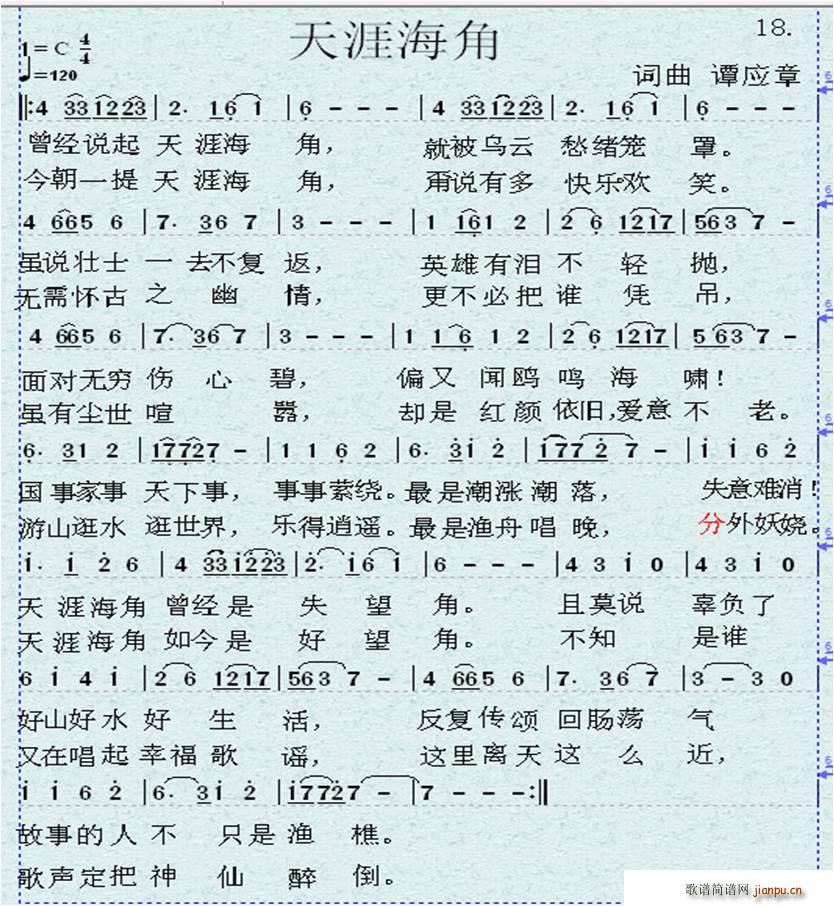 天涯海角
18.
1=C 4/4
♩=120
词曲 谭应章
‖:4 331223|2· 161|6 - - -|4 331223|2· 161|6 - - -
曾经说起 天 涯海 角, 就被乌云 愁绪笼 罩。
今朝一提 天 涯海 角, 甭说有多 快乐欢 笑。
4 665 6|7· 36 7|3 - - -|1 161 2|2 6 1217|563 7 -
虽说壮士 一 去不复 返, 英雄有泪 不 轻 抛,
无需怀古 之 幽 情, 更不必把 谁 凭 吊,
4 665 6|7· 36 7|3 - - -|1 16 1 2|2 6 1217|563 7 -
面对无穷 伤 心 碧, 偏又 闻鸥 鸣 海 啸!
虽有尘世 喧 嚣, 却是 红颜 依旧,爱意 不 老。
6· 31 2|17727 -|1 1 6 2|6· 3i 2|i77 2 7 -|i i 6 2
国事家事 天下事, 事事萦绕。最是潮涨 潮 落, 失意难消!
游山逛水 逛世界, 乐得逍遥。最是渔舟 唱 晚, 分外妖娆。
i· i 2 6|4 331223|2· i6 i|6 - - -|4 3 i 0|4 3 i 0
天 涯海角 曾经是 失 望 角。 且莫说 辜负了
天 涯海角 如今是 好 望 角。 不知 是谁
6 i 4 i|2 6 1217|563 7 -|4 665 6|7· 36 7|3 - 3 0
好山好水 好 生 活, 反复传颂 回肠荡 气
又在唱起 幸福 歌 谣, 这里离天 这 么 近,
i i 6 2|6· 3i 2|i7727 -|7 - - -:‖
故事的人 不 只是 渔 樵。
歌声定把 神 仙 醉 倒。
歌谱简谱网 jianpu.cn